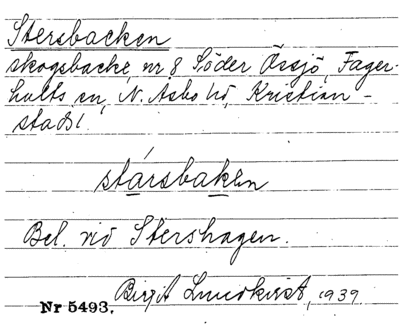 Stersbacken
skogsbacke, nr 8 Söder Össjö, Fager-
hults sn, N. Asbo hd, Kristian-
stads l.
stársbaken
Bel. vid Stershagen.
Birgit Lundkvist, 1939
Nr 5493.